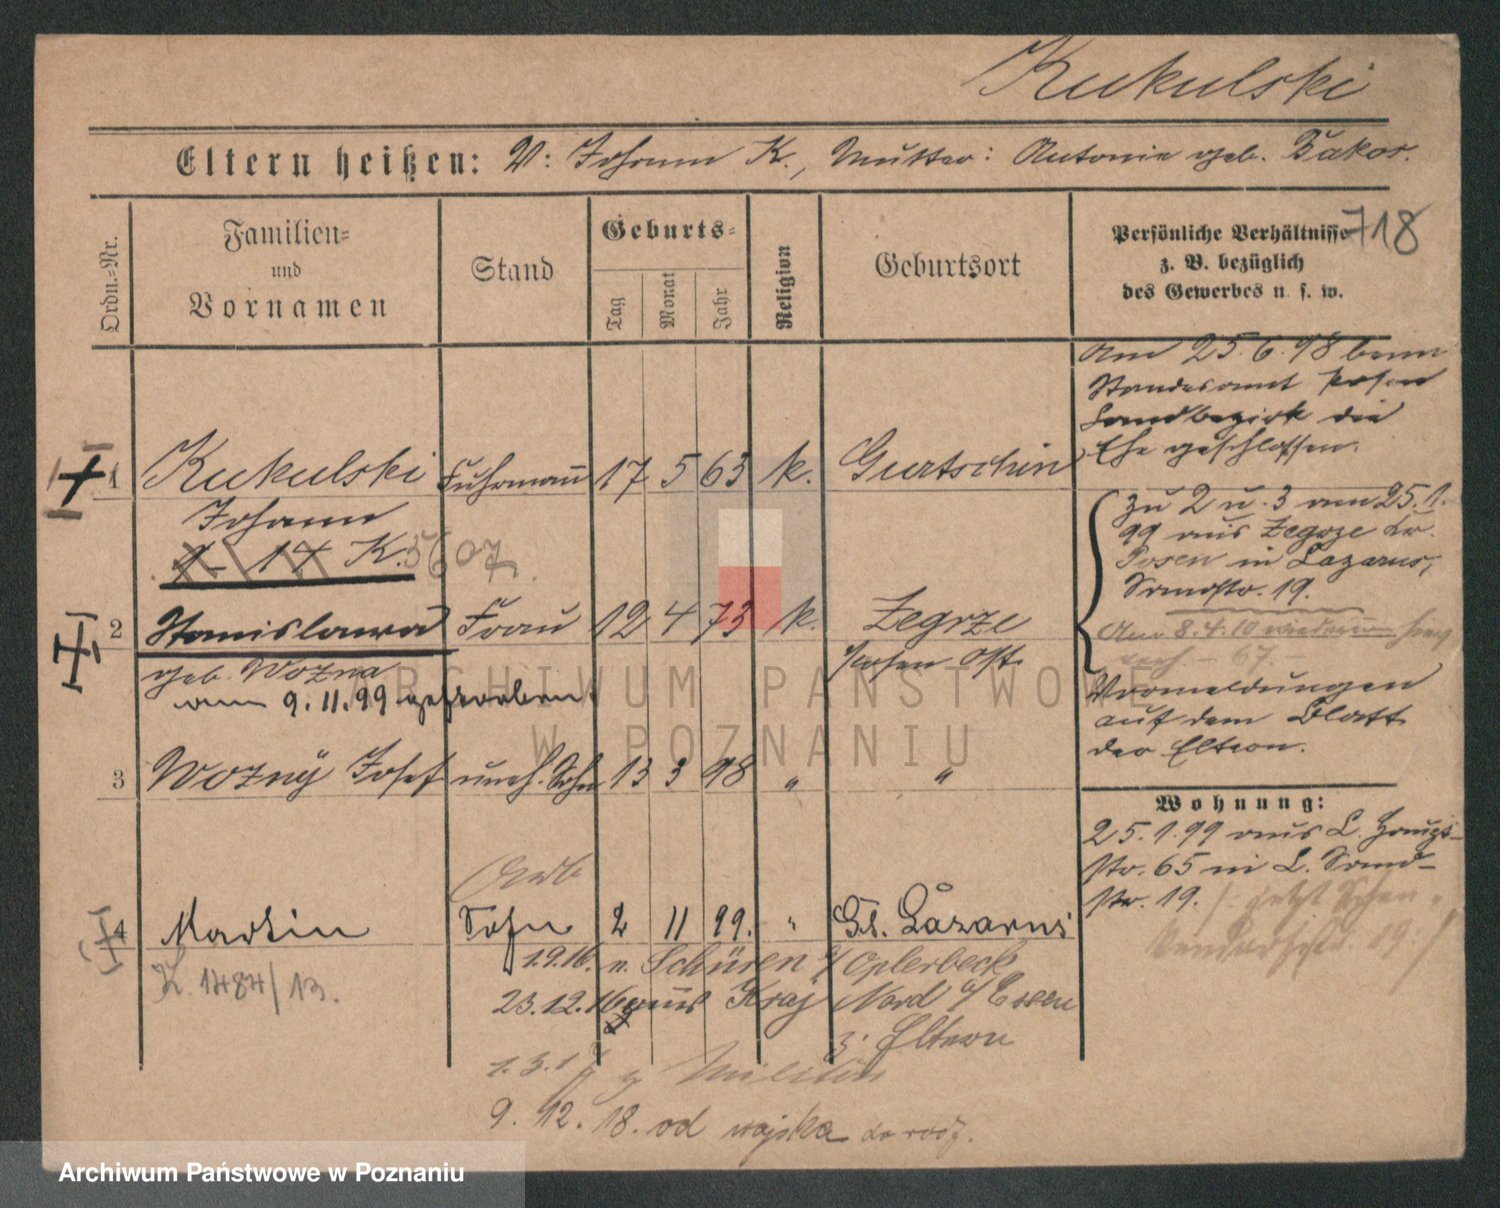 Kukulski
Eltern heißen: V: Johann K., Mutter: Antonie geb. Bakos.
718
Ordn.-Nr.
Familien-
und
Vornamen
Stand
Geburts-
Tag
Monat
Jahr
Religion
Geburtsort
Persönliche Verhältnisse
z. B. bezüglich
des Gewerbes u. s. w.
Am 25.6.98 beim
Standesamt Posen
Landbezirk die
Ehe geschlossen.
1 Kukulski Fuhrmann 17 5 63 k. Gurtschin
Johann
zu 2 u. 3 am 25.1.
99 aus Zegrze Kr.
Posen in Lazarus,
Sandstr. 19.
2 Stanislawa Frau 12 4 73 k. Zegrze
Posen Ost
geb. Wozna
am 9.11.99 gestorben.
Am 8.4.10 wiederum
Vormeldungen
auf dem Blatt
der Eltern.
3 Wozny Josef uneh. Sohn 13 3 98 " "
Wohnung:
25.1.99 aus L. Haupt-
str. 65 in L. Sand-
str. 19. /: jetzt
4 Martin Sohn 2 11 99. " St. Lazarus
K. 1484/13.
1.9.16. n. Schüren b/ Oplerbeck
23.12.16 aus Kray Nord b/ Essen
z. Eltern
z. Militär
9.12.18. od wojska do rodz.
ARCHIWUM PAŃSTWOWE
W POZNANIU
Archiwum Państwowe w Poznaniu